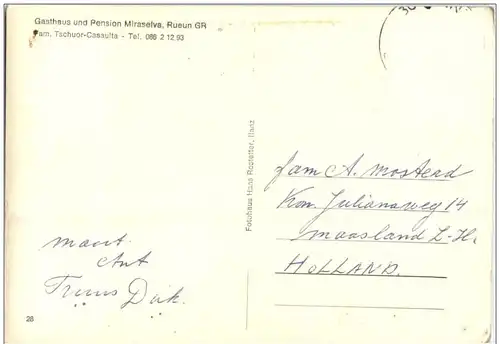 Gasthaus und Pension Miraselva, Rueun GR
Fam. Tschuor-Casaulta - Tel. 086 2 12.93
Fotohaus Hans Rostetter, Ilanz
fam A. Mosterd
Kon. Julianaweg 14
Maasland Z-H.
HOLLAND.
Ant
Truus Dick.
28